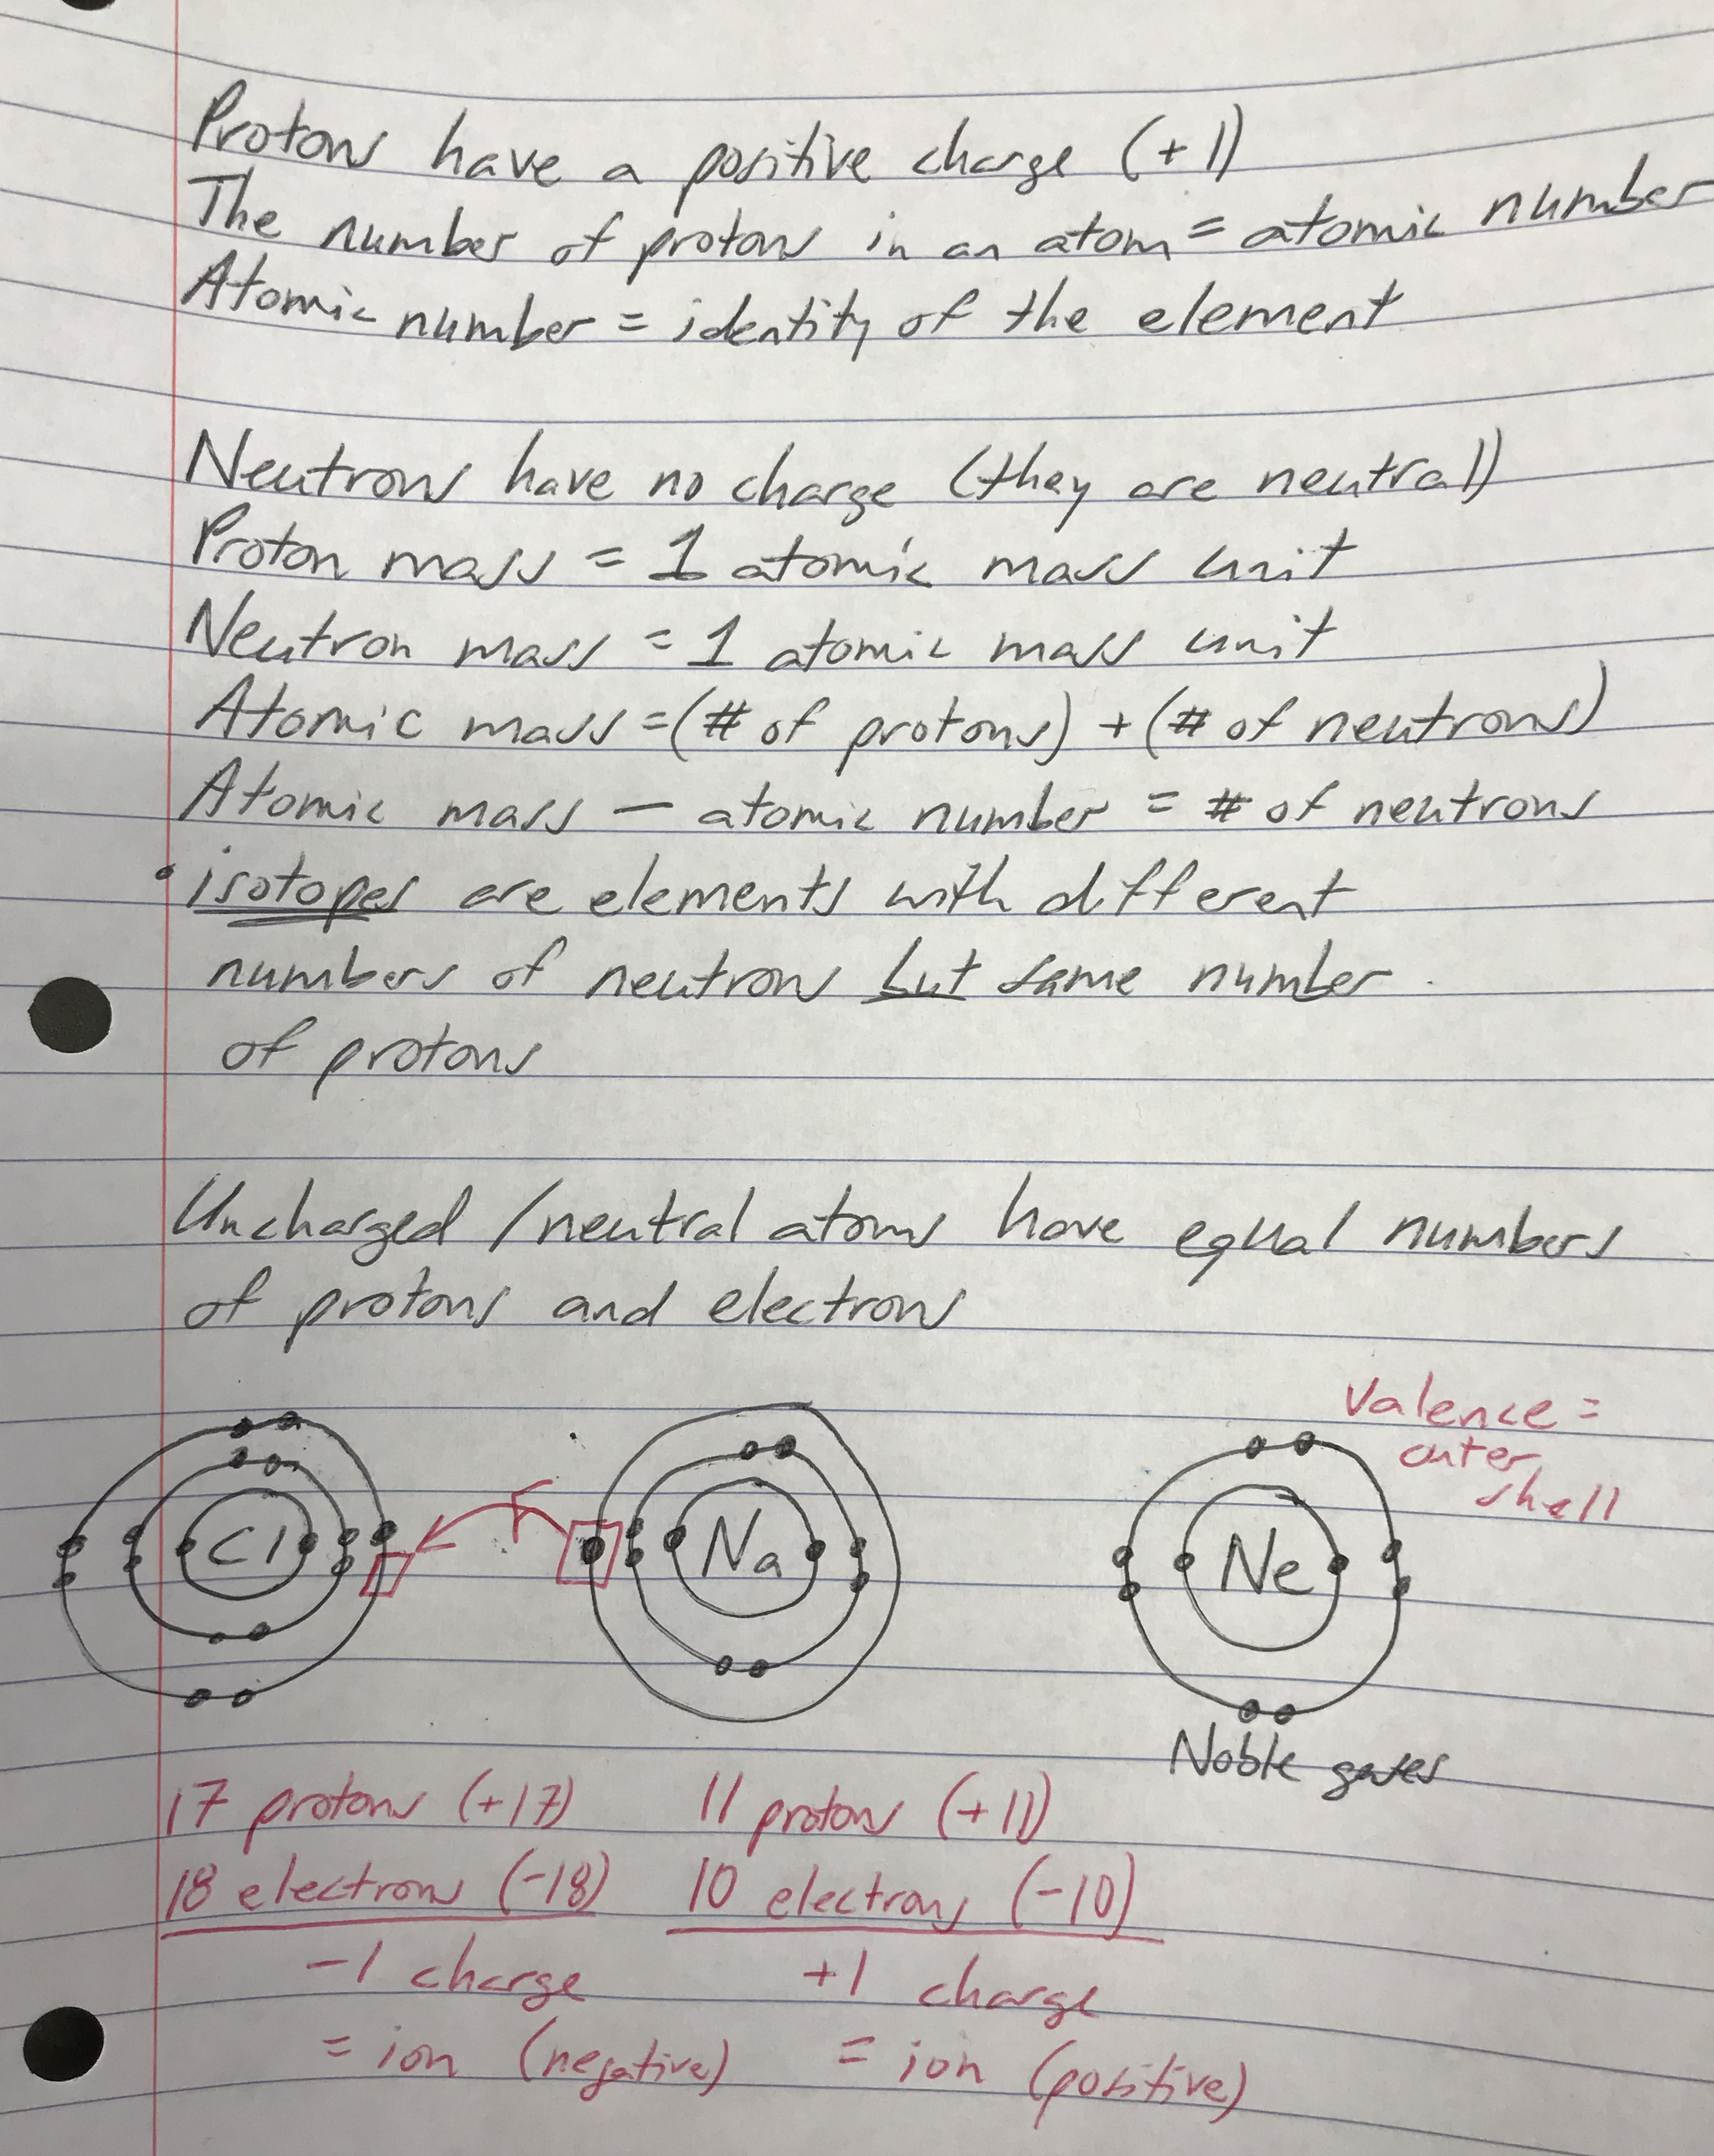 Protons have a positive charge (+1)
The number of protons in an atom = atomic number
Atomic number = identity of the element
Neutrons have no charge (they are neutral)
Proton mass = 1 atomic mass unit
Neutron mass = 1 atomic mass unit
Atomic mass = (# of protons) + (# of neutrons)
Atomic mass — atomic number = # of neutrons
• isotopes are elements with different
numbers of neutrons but same number
of protons
Uncharged / neutral atoms have equal numbers
of protons and electrons
Valence =
outer
shell
Cl Na Ne
Noble gases
17 protons (+17) 11 protons (+11)
18 electrons (-18) 10 electrons (-10)
-1 charge +1 charge
= ion (negative) = ion (positive)